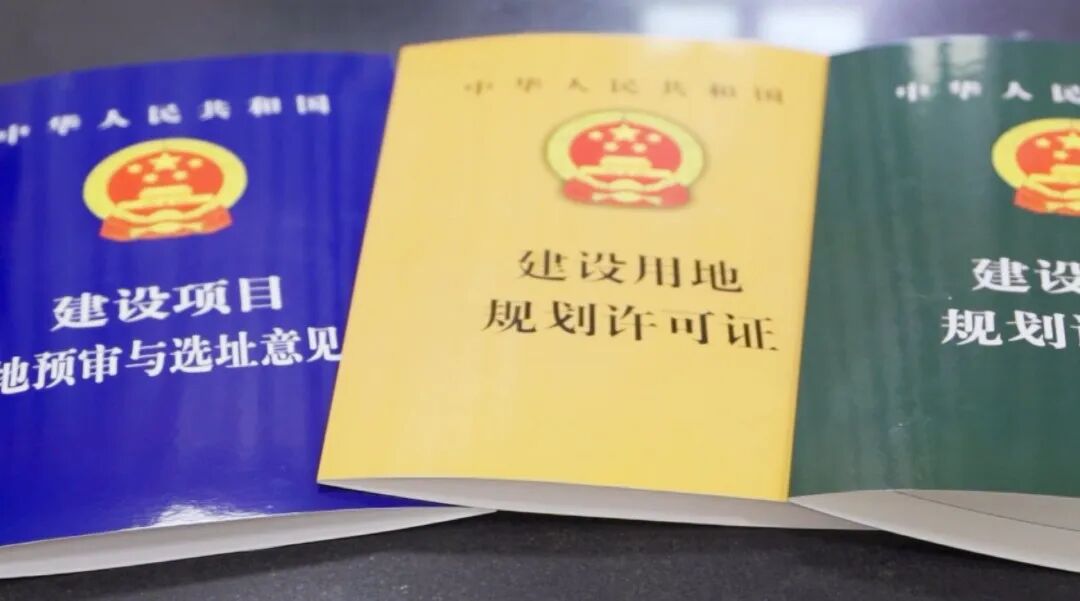 中华人民共和国
建设项目
地预审与选址意见
中华人民共和国
建设用地
规划许可证
中华人民
建设
规划